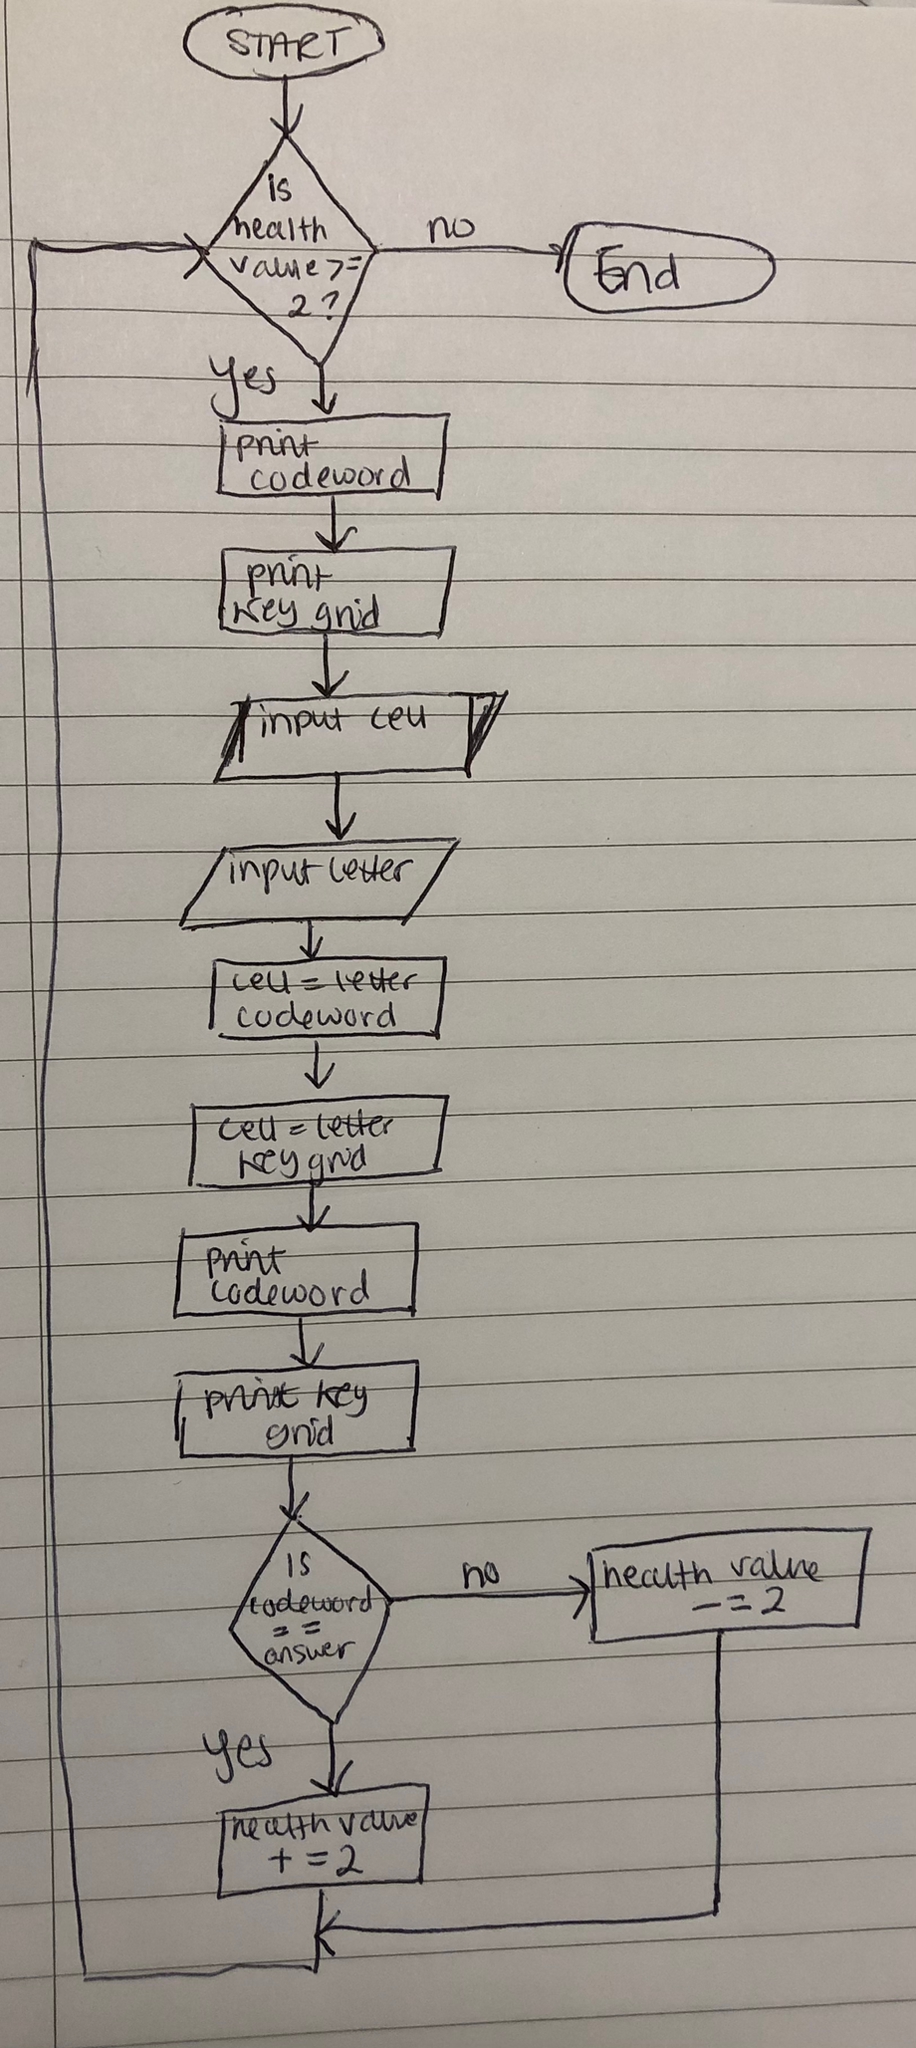 START
is
health
value >=
2?
no
End
Yes
print
codeword
print
key grid
input cell
input letter
cell = letter
codeword
cell = letter
key grid
print
codeword
print key
grid
Is
codeword
==
answer
no
health value
-=2
Yes
health value
+=2